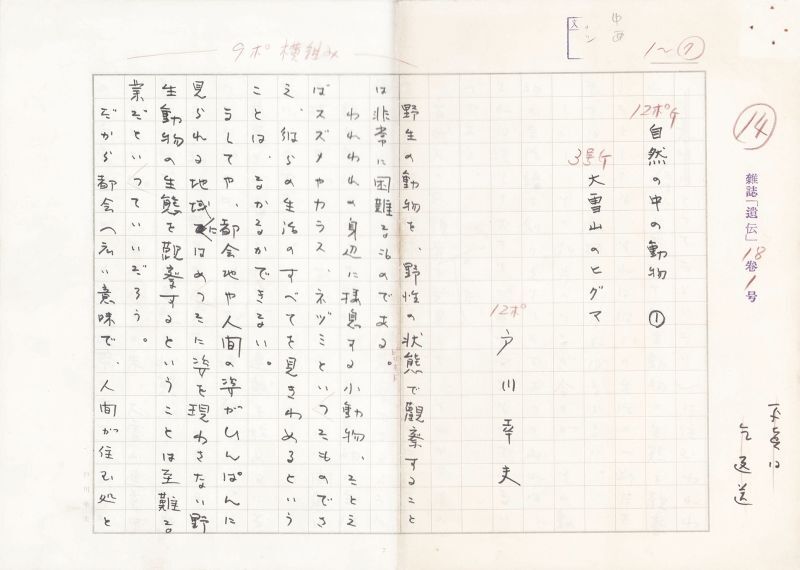 14
雑誌「遺伝」18巻1号
写真は
乞返送
1〜⑦
中西
12ポケ
自然の中の動物 ①
3号ケ
大雪山のヒグマ
12ポ
戸川幸夫
9ポ 横組み
野生の動物を、野性の状態で観察すること
は非常に困難なものである。
われわれの身辺に棲息する小動物、たとえ
ばスズメやカラス、ネヅミといつたものでさ
え、彼らの生活のすべてを見きわめるという
ことは、なかなかできない。
ましてや、都会地や人間の姿がひんぱんに
見られる地域にはめつたに姿を現わさない野
生動物の生態を観察するということは至難な
業だといつていいだろう。
だから都会(広い意味で、人間が住む処と